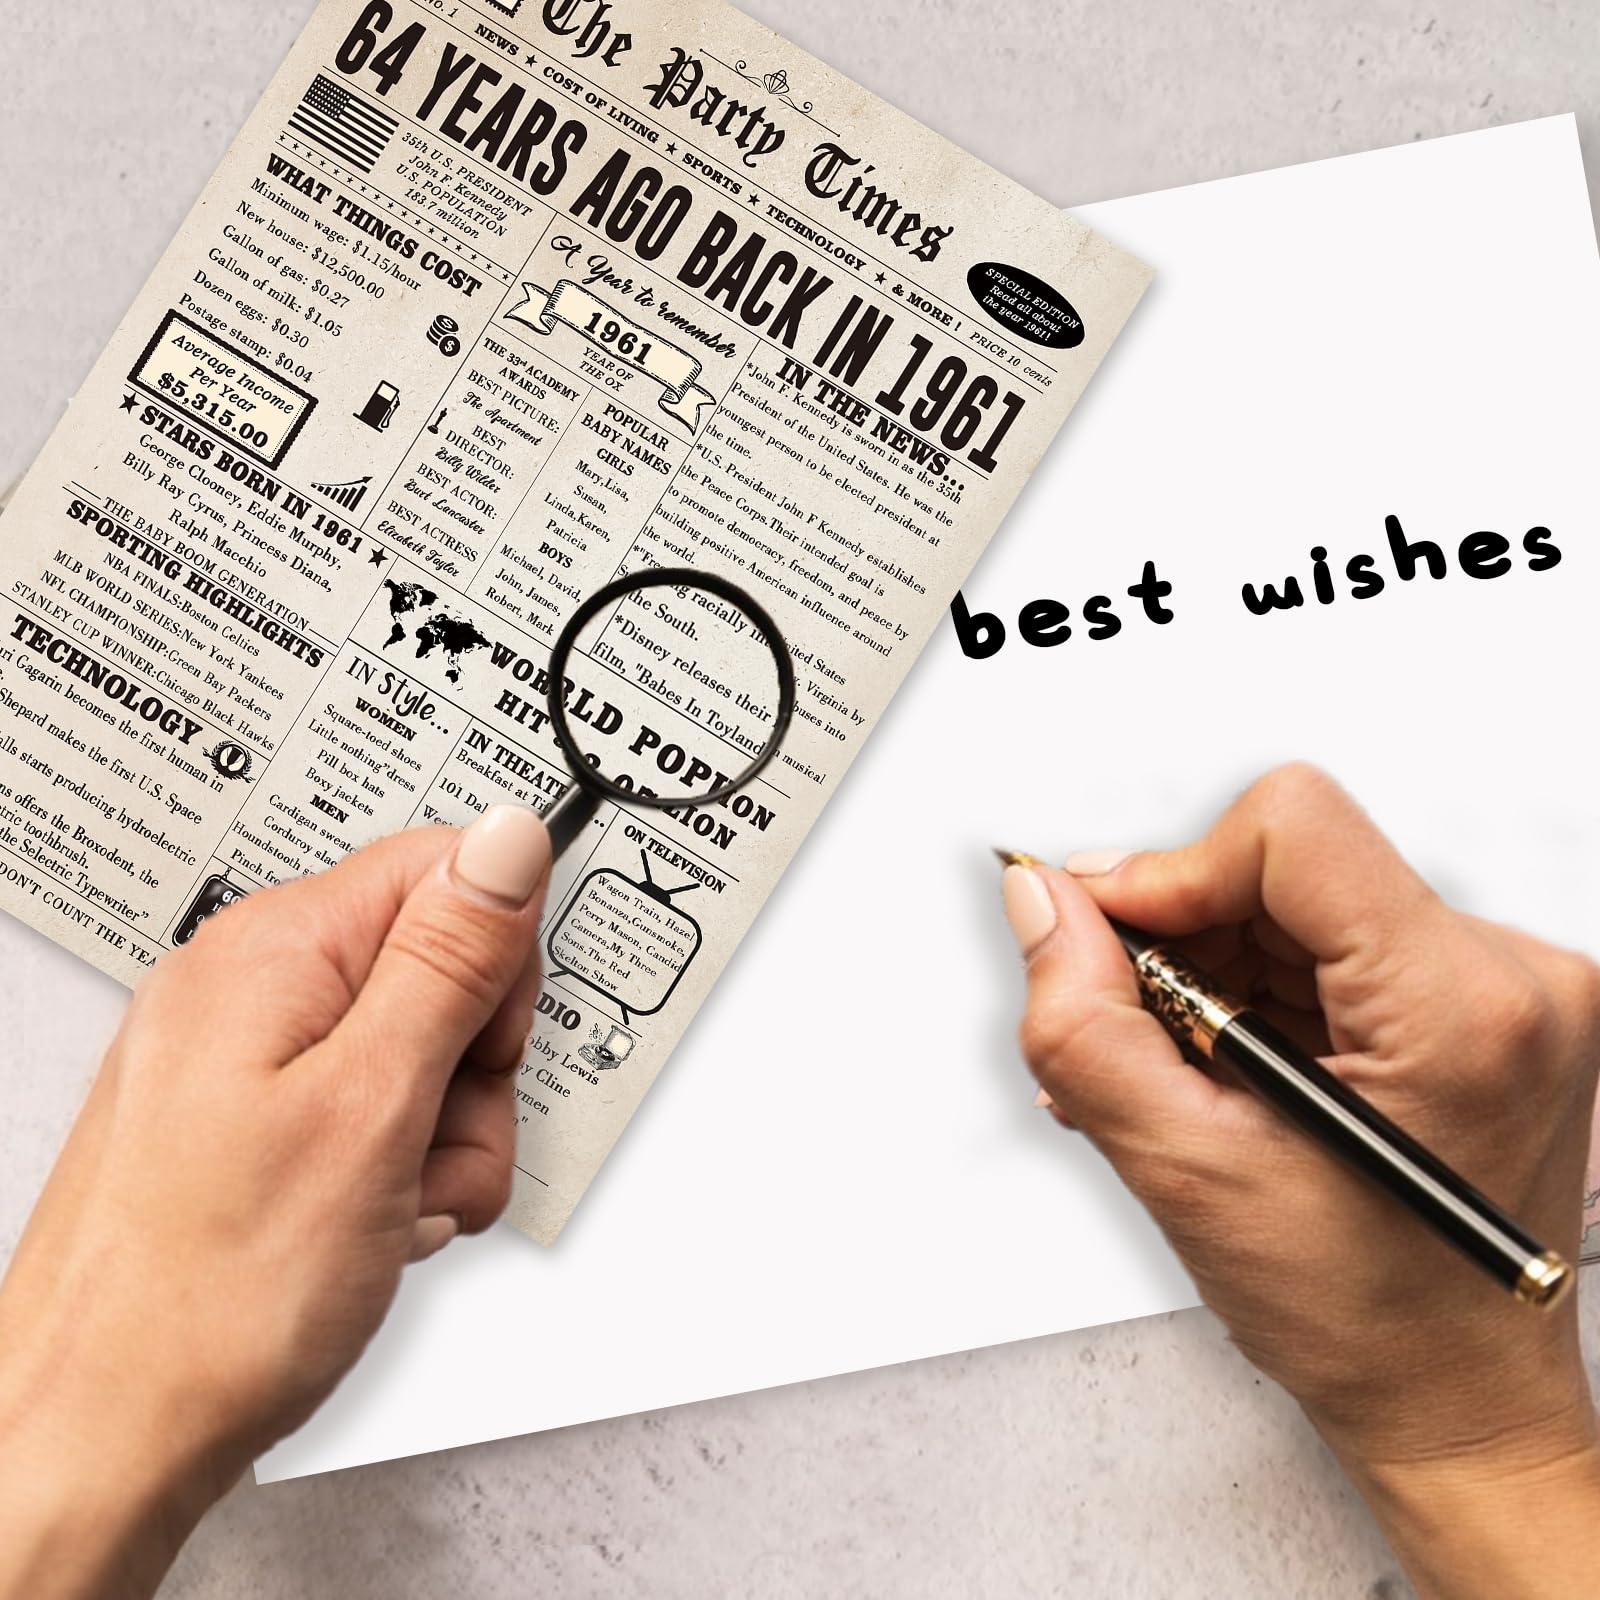 The Party Times
NO. 1
NEWS ★ COST OF LIVING ★ SPORTS ★ TECHNOLOGY ★ & MORE! PRICE 10 cents
64 YEARS AGO BACK IN 1961
SPECIAL EDITION
Read all about
the year 1961!
35th U.S. PRESIDENT
John F. Kennedy
U.S. POPULATION
183.7 million
WHAT THINGS COST
Minimum wage: $1.15/hour
New house: $12,500.00
Gallon of gas: $0.27
Gallon of milk: $1.05
Dozen eggs: $0.30
Postage stamp: $0.04
Average Income
Per Year
$5,315.00
★ STARS BORN IN 1961 ★
George Clooney, Eddie Murphy,
Billy Ray Cyrus, Princess Diana,
Ralph Macchio
THE BABY BOOM GENERATION
SPORTING HIGHLIGHTS
NBA FINALS:Boston Celtics
MLB WORLD SERIES:New York Yankees
NFL CHAMPIONSHIP:Green Bay Packers
STANLEY CUP WINNER:Chicago Black Hawks
TECHNOLOGY
Gagarin becomes the first human in
Shepard makes the first U.S. Space
starts producing hydroelectric
offers the Broxodent, the
toothbrush.
the Selectric Typewriter"
DON'T COUNT THE
A Year to remember
1961
YEAR OF
THE OX
THE 33rd ACADEMY
AWARDS
BEST PICTURE:
The Apartment
BEST
DIRECTOR:
Billy Wilder
BEST ACTOR:
Burt Lancaster
BEST ACTRESS
Elizabeth Taylor
POPULAR
BABY NAMES
GIRLS
Mary,Lisa,
Susan,
Linda,Karen,
Patricia
BOYS
Michael, David,
John, James,
Robert, Mark
IN THE NEWS...
*John F. Kennedy is sworn in as the 35th
President of the United States. He was the
youngest person to be elected president at
the time.
*U.S. President John F Kennedy establishes
the Peace Corps.Their intended goal is
to promote democracy, freedom, and peace by
building positive American influence around
the world.
racially
United States
Virginia by
buses into
the South.
*Disney releases their
film, "Babes In Toyland
musical
WORLD POP
HIT
IN Style...
WOMEN
Square-toed shoes
Little nothing"dress
Pill box hats
Boxy jackets
MEN
Cardigan
Corduroy
Houndstooth
Pinch
IN
Breakfast at
101
ON TELEVISION
Wagon Train, Hazel
Bonanza,Gunsmoke,
Perry Mason, Candid
Camera,My Three
Sons.The Red
Skelton Show
Lewis
Cline
best wishes